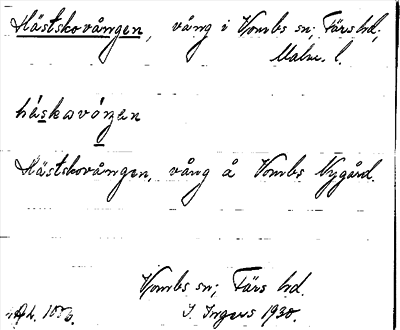 Hästskovången, vång i Vombs sn; Färs hd;
Malm. l.
häskavángen
Hästskovången, vång å Vombs Nygård.
Vombs sn; Färs hd.
J. Ingers 1930.